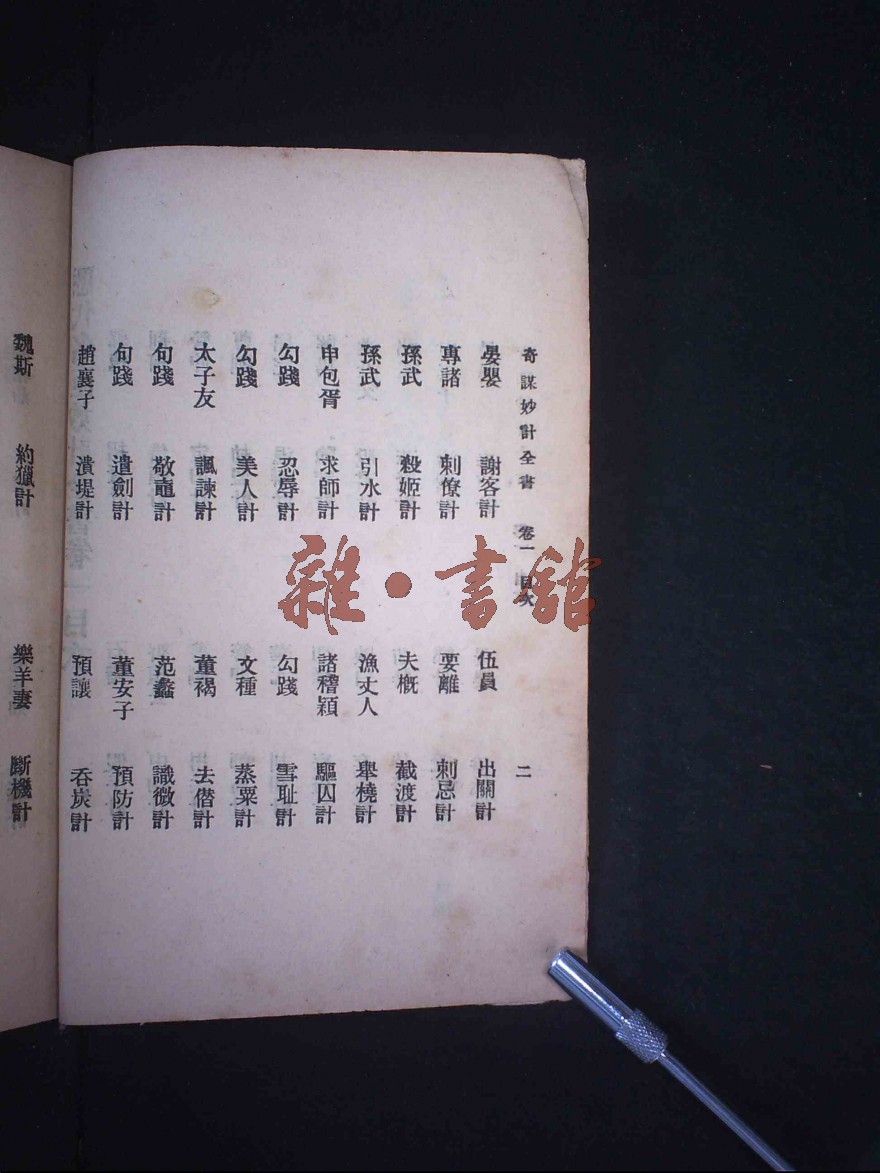 奇謀妙計全書 卷一 目次 二
晏嬰 謝客計 伍員 出關計
專諸 刺僚計 要離 刺忌計
孫武 殺姬計 夫槪 截渡計
孫武 引水計 漁丈人 舉橈計
申包胥 求師計 諸稽穎 驅囚計
勾踐 忍辱計 勾踐 雪耻計
勾踐 美人計 文種 蒸粟計
太子友 諷諫計 董褐 去僭計
句踐 敬鼃計 范蠡 識微計
句踐 遣劍計 董安子 預防計
趙襄子 潰堤計 預讓 吞炭計
魏斯 約獵計 樂羊妻 斷機計
雜·書館